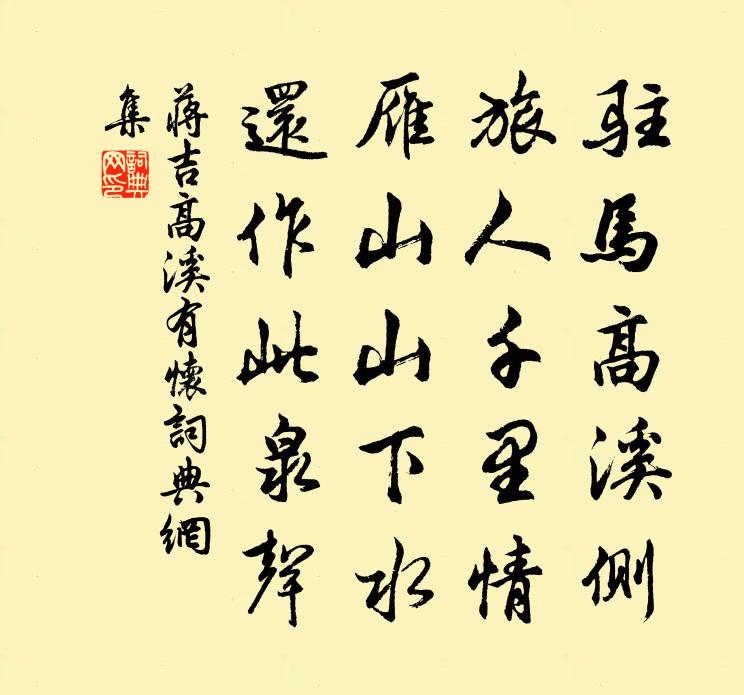 駐馬高溪側
旅人千里情
雁山山下水
還作此泉聲
蔣吉高溪有懷詞典網
集
詞典網印